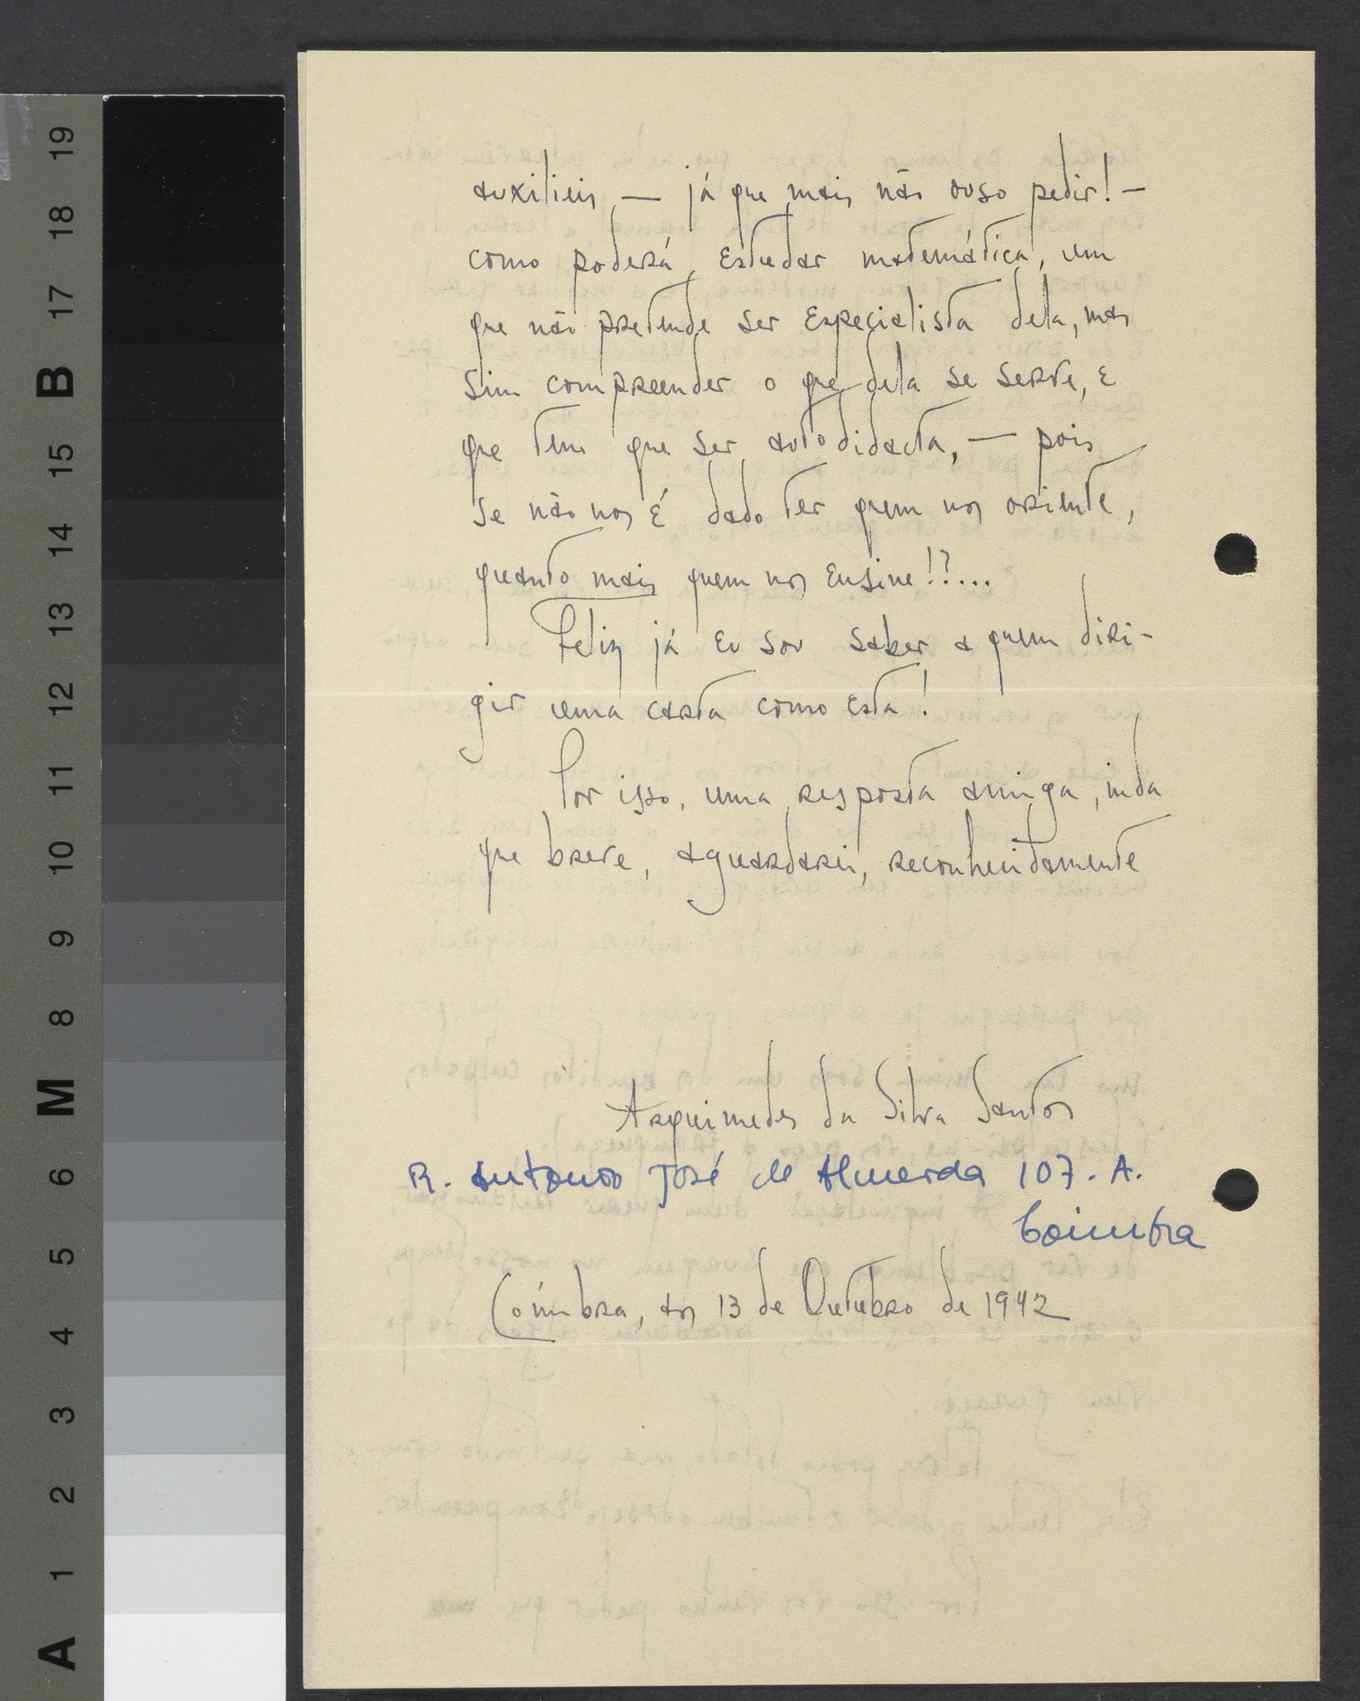 auxilieis, — já que mais não ouso pedir! —
como poderá estudar matemática, um
que não pretende ser especialista dela, mas
sim compreender o que dela se serve, e
que tem que ser autodidacta, — pois
se não nos é dado ter quem nos oriente,
quanto mais quem nos ensine!?...
Feliz já eu sou saber a quem diri-
gir uma carta como esta!
Por isso, uma resposta amiga, inda
que breve, aguardarei, reconhecidamente
Arquimedes da Silva Santos
R. Antonio José de Almeida 107. A.
Coimbra
Coímbra, aos 13 de Outubro de 1942
A 1 2 3 4 5 6 M 8 9 10 11 12 13 14 15 B 17 18 19